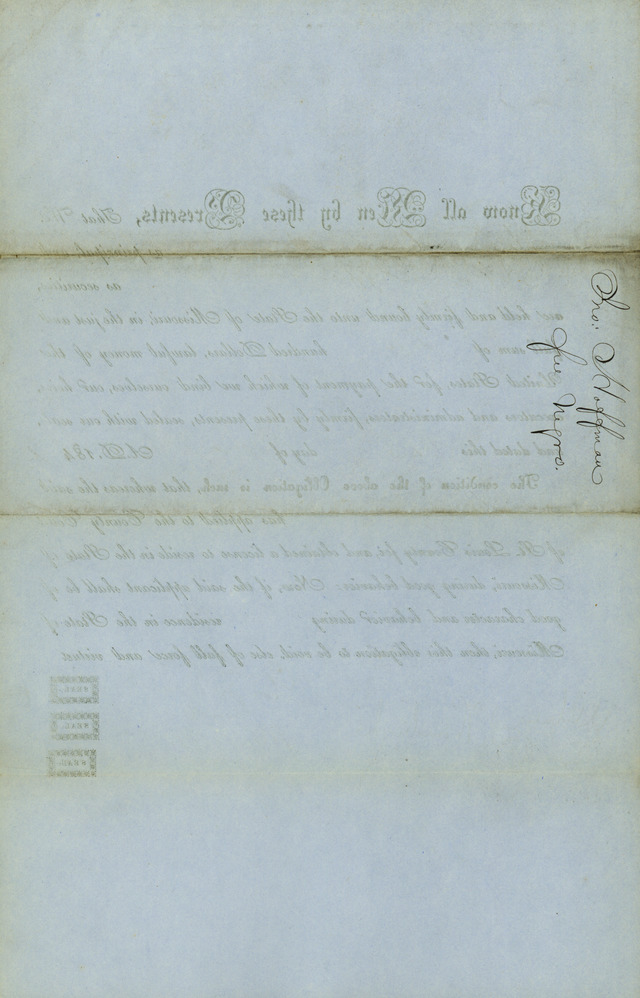 Jno: Hoffman
free Negro.
Know all Men by these Presents, That We
principal,
as securities,
are held and firmly bound unto the State of Missouri, in the just and
sum of hundred Dollars, lawful money of the
United States, for the payment of which we bind ourselves, our heirs,
executors and administrators, firmly by these presents, sealed with our seals,
and dated this day of A.D. 184
The condition of the above Obligation is such, that whereas the said
has applied to the County Court
of St. Louis County for, and obtained a license to reside in the State of
Missouri, during good behavior: Now, if the said applicant shall be of
good character and behavior during residence in the State of
Missouri, then this obligation to be void, else of full force and virtue.
SEAL.
SEAL.
SEAL.